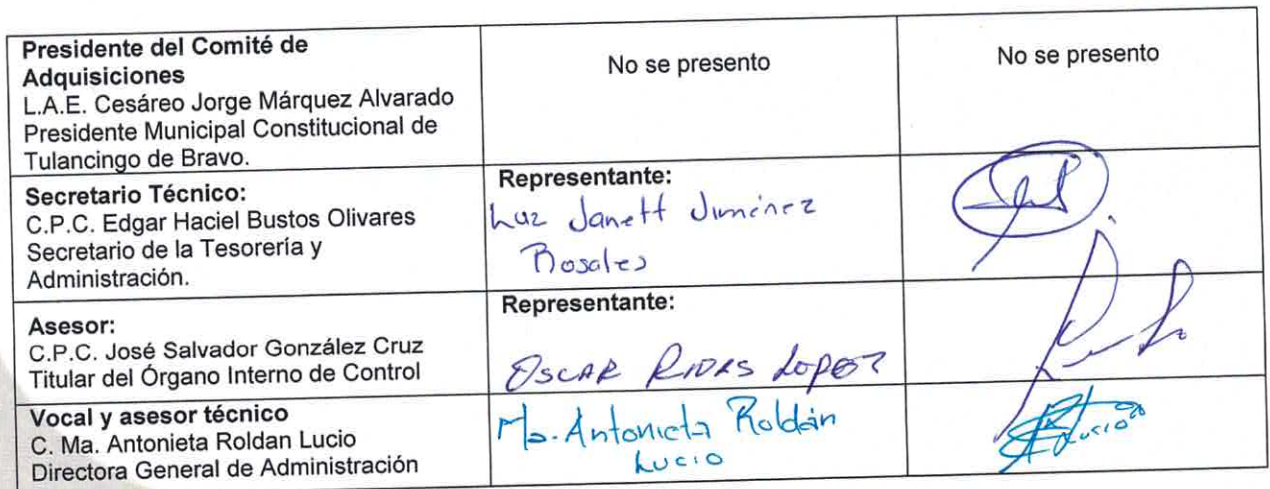 Presidente del Comité de
Adquisiciones
L.A.E. Cesáreo Jorge Márquez Alvarado
Presidente Municipal Constitucional de
Tulancingo de Bravo.
No se presento
No se presento
Secretario Técnico:
C.P.C. Edgar Haciel Bustos Olivares
Secretario de la Tesorería y
Administración.
Representante:
Luz Janett Jiménez
Rosales
Asesor:
C.P.C. José Salvador González Cruz
Titular del Órgano Interno de Control
Representante:
OSCAR RIVAS LOPEZ
Vocal y asesor técnico
C. Ma. Antonieta Roldan Lucio
Directora General de Administración
Ma. Antonieta Roldán
Lucio
Lucio